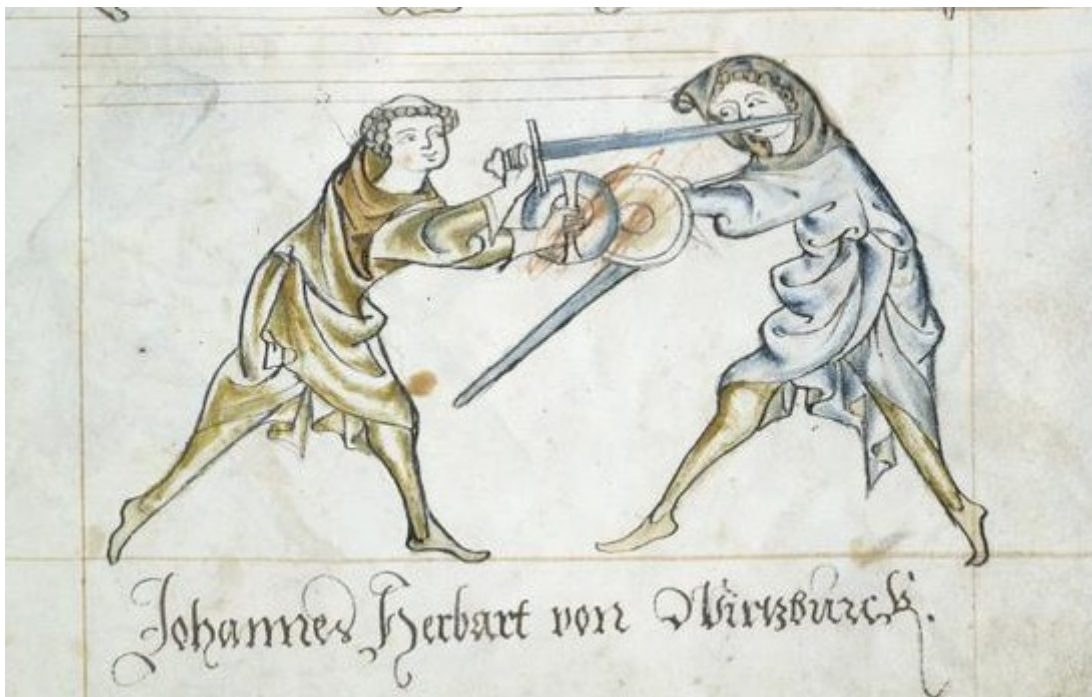 Johannes Herbart von Wirtzburck.